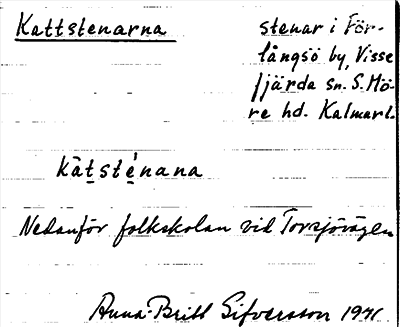 Kattstenarna
stenar i För-
långsö by, Visse
fjärda sn. S. Mö-
re hd. Kalmarl.
kàt̲sté̲nana
Nedanför folkskolan vid Torsjövägen
Anna-Britt Sifversson